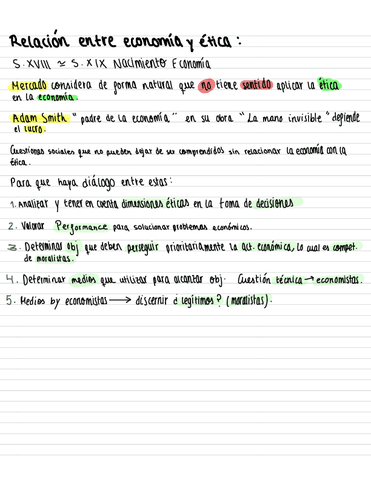 Relación entre economía y ética:
S. XVIII ≃ S. XIX Nacimiento Economía
Mercado considera de forma natural que no tiene sentido aplicar la ética
en la economía.
Adam Smith "padre de la economía" en su obra "La mano invisible" defiende
el lucro.
Cuestiones sociales que no pueden dejar de ser comprendidos sin relacionar la economía con la
ética.
Para que haya diálogo entre estas:
1. Analizar y tener en cuenta dimensiones éticas en la toma de decisiones
2. Valorar Performance para solucionar problemas económicos.
3. Determinar obj que deben perseguir prioritariamente la act. económica, lo cual es compet.
de moralistas.
4. Determinar medios que utilizar para alcantar obj. Cuestión técnica → economistas.
5. Medios by economistas → discernir ¿legítimos? (moralistas).